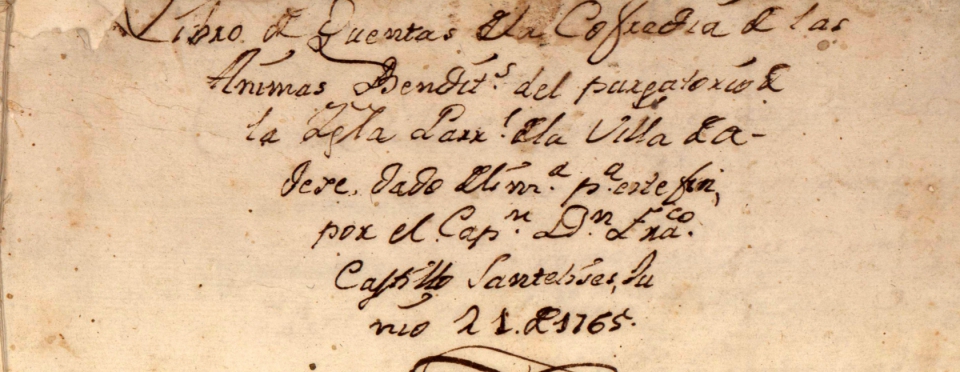 Libro de Quentas de la Cofradia de las
Animas Bendit.s del purgatorio de
la Igla Parr.l de la Villa de A-
dexe, dado de lim.a p.a este fin,
por el Cap.n D.n Fran.co
Castillo Santelises, Ju
nio 21. de 1765.